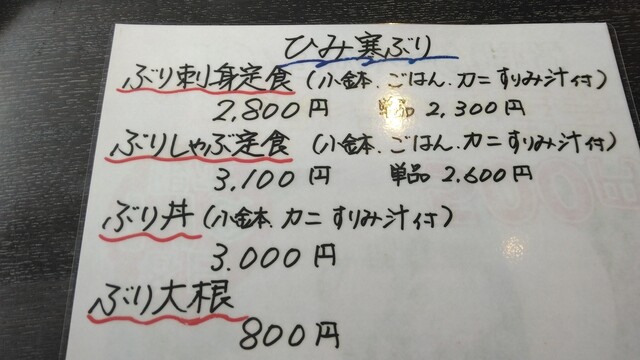 ひみ寒ぶり
ぶり刺身定食(小鉢.ごはん.カニすりみ汁付)
2,800円 単品 2,300円
ぶりしゃぶ定食(小鉢.ごはん.カニすりみ汁付)
3,100円 単品 2.600円
ぶり丼(小鉢.カニすりみ汁付)
3.000円
ぶり大根
800円